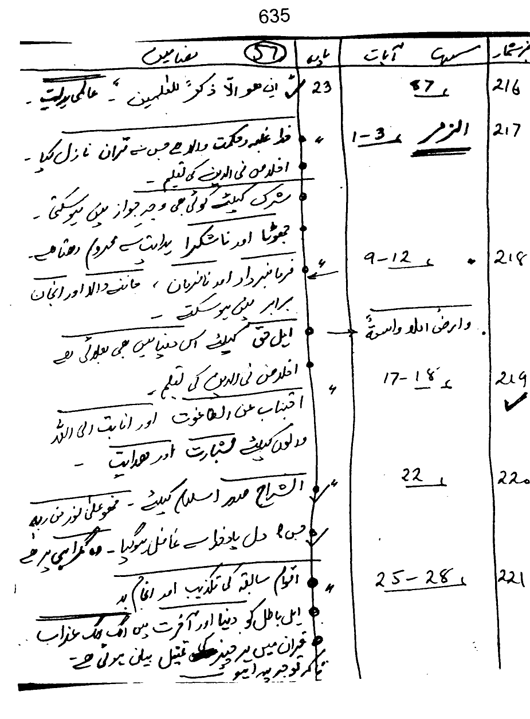 635
نمبر شمار سورتہا آیات پارہ 57 مضامین
216 87 23 ان ھو الا ذکرٌ للعٰلمین - عالمی ہدایت -
217 الزمر 1-3 〃 خدا غلبہ و حکمت والا ہے جس نے قرآن نازل کیا -
اخلاص فی الدین کی تعلیم -
شرک کیلئے کوئی بھی وجہ جواز نہیں ہوسکتی -
جھوٹا اور ناشکرا ہدایت سے محروم رہتا ہے -
218 〃 9-12 〃 فرمانبردار اور نافرمان ، جاننے والا اور انجان
برابر نہیں ہوسکتے -
وارضُ اللہ واسعةٌ اہل حق کیلئے اس دنیا میں بھی بھلائی ہے
اخلاص فی الدین کی تعلیم -
219 〃 17-18 〃 اجتناب عن الطاغوت اور انابت الی اللہ
والوں کیلئے بشارت اور ہدایت -
220 〃 22 〃 انشراح صدر اسلام کیلئے - فھو علیٰ نور من ربہ
جس کا دل یاد خدا سے غافل ہوگیا - وہ گمراہی پر ہے
221 〃 25-28 〃 اقوام سابقہ کی تکذیب اور انجام بد
اہل باطل کو دنیا اور آخرت میں الگ الگ عذاب
قرآن میں ہر چیز کی تمثیل بیان ہوئی ہے -
تاکہ توجہ پیدا ہو